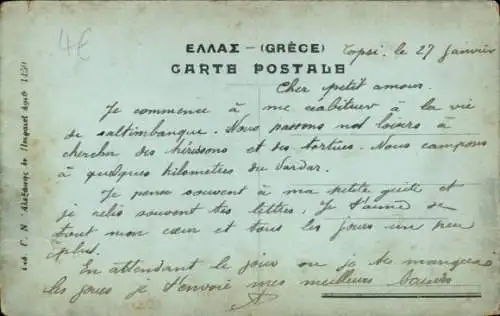 4€
ΕΛΛΑΣ – (GRÈCE)
CARTE POSTALE
Topsi. le 27 Janvier
Cher petit amour.
Je commence à me réabituer à la vie
de saltimbanque. Nous passons nos loisirs à
chercher des hérissons et des tortues. Nous campons
à quelques kilomètres du Vardar.
Je pense souvent à ma petite et
je relis souvent tes lettres. Je t'aime de
tout mon cœur et tous les jours un peu
plus.
En attendant le jour ou je te mangerai
les joues je t'envoie mes meilleurs baisers